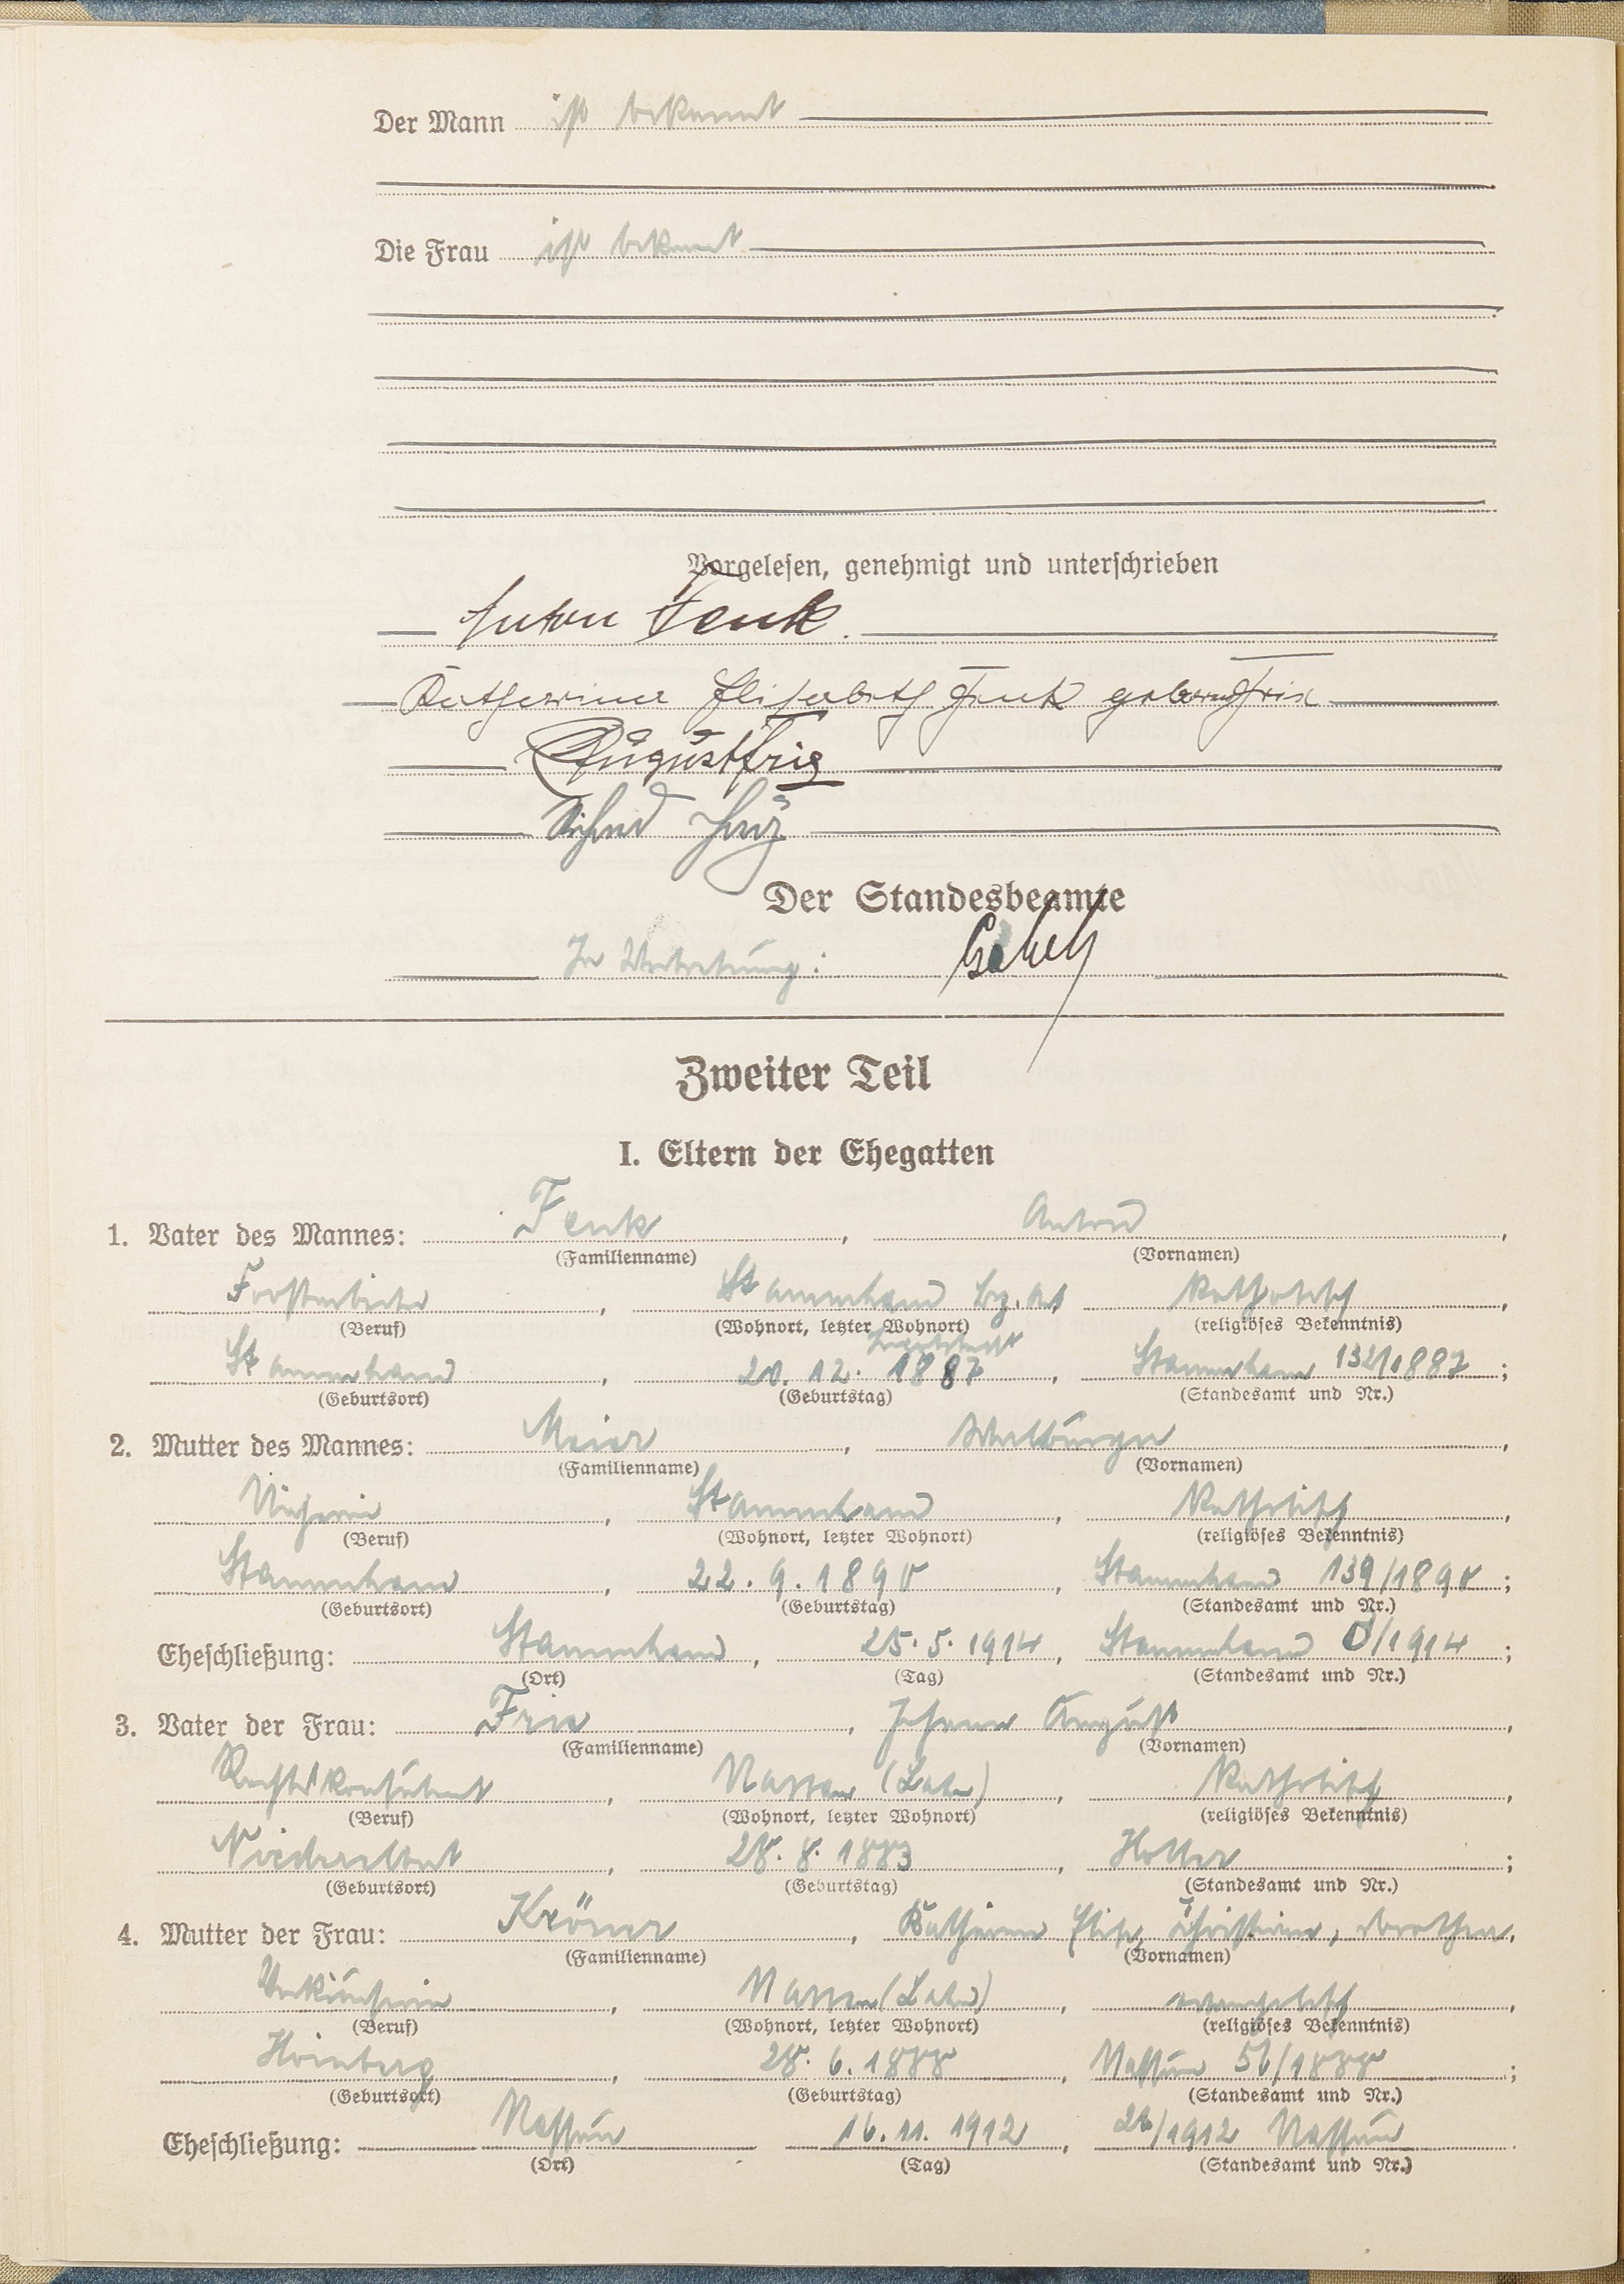 Der Mann ist bekannt
Die Frau ist bekannt
Vorgelesen, genehmigt und unterschrieben
Anton Fenk.
Katharina Elisabeth Fenk geborene Frix
August Frix
Der Standesbeamte
In Vertretung:
Zweiter Teil
I. Eltern der Ehegatten
1. Vater des Mannes: Fenk, Anton,
(Familienname) (Vornamen)
Forstarbeiter, Stammham Bz. Amt katholisch,
(Beruf) (Wohnort, letzter Wohnort) (religiöses Bekenntnis)
Ingolstadt
Stammham, 20. 12. 1887, Stammham 132/1887;
(Geburtsort) (Geburtstag) (Standesamt und Nr.)
2. Mutter des Mannes: Meier, Walburga,
(Familienname) (Vornamen)
Stammham, katholisch,
(Beruf) (Wohnort, letzter Wohnort) (religiöses Bekenntnis)
Stammham, 22. 9. 1890, Stammham 139/1890;
(Geburtsort) (Geburtstag) (Standesamt und Nr.)
Eheschließung: Stammham, 25. 5. 1914, Stammham /1914;
(Ort) (Tag) (Standesamt und Nr.)
3. Vater der Frau: Frix, Johann August,
(Familienname) (Vornamen)
Rechtskonsulent, Nassau (Lahn), katholisch,
(Beruf) (Wohnort, letzter Wohnort) (religiöses Bekenntnis)
Niederelbert, 28. 8. 1883, Holler;
(Geburtsort) (Geburtstag) (Standesamt und Nr.)
4. Mutter der Frau: Kröner, Katharina Elise, Christiane, Dorothea,
(Familienname) (Vornamen)
Verkäuferin, Nassau (Lahn), evangelisch,
(Beruf) (Wohnort, letzter Wohnort) (religiöses Bekenntnis)
Hömberg, 28. 6. 1888, Nassau 56/1888;
(Geburtsort) (Geburtstag) (Standesamt und Nr.)
Eheschließung: Nassau 16. 11. 1912, 26/1912 Nassau.
(Ort) (Tag) (Standesamt und Nr.)